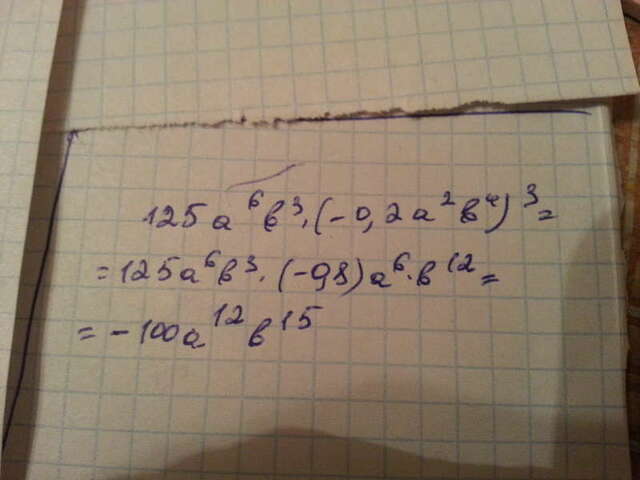 125a⁶b³·(-0,2a²b⁴)³=
=125a⁶b³·(-0,8)a⁶·b¹²=
=-100a¹²b¹⁵